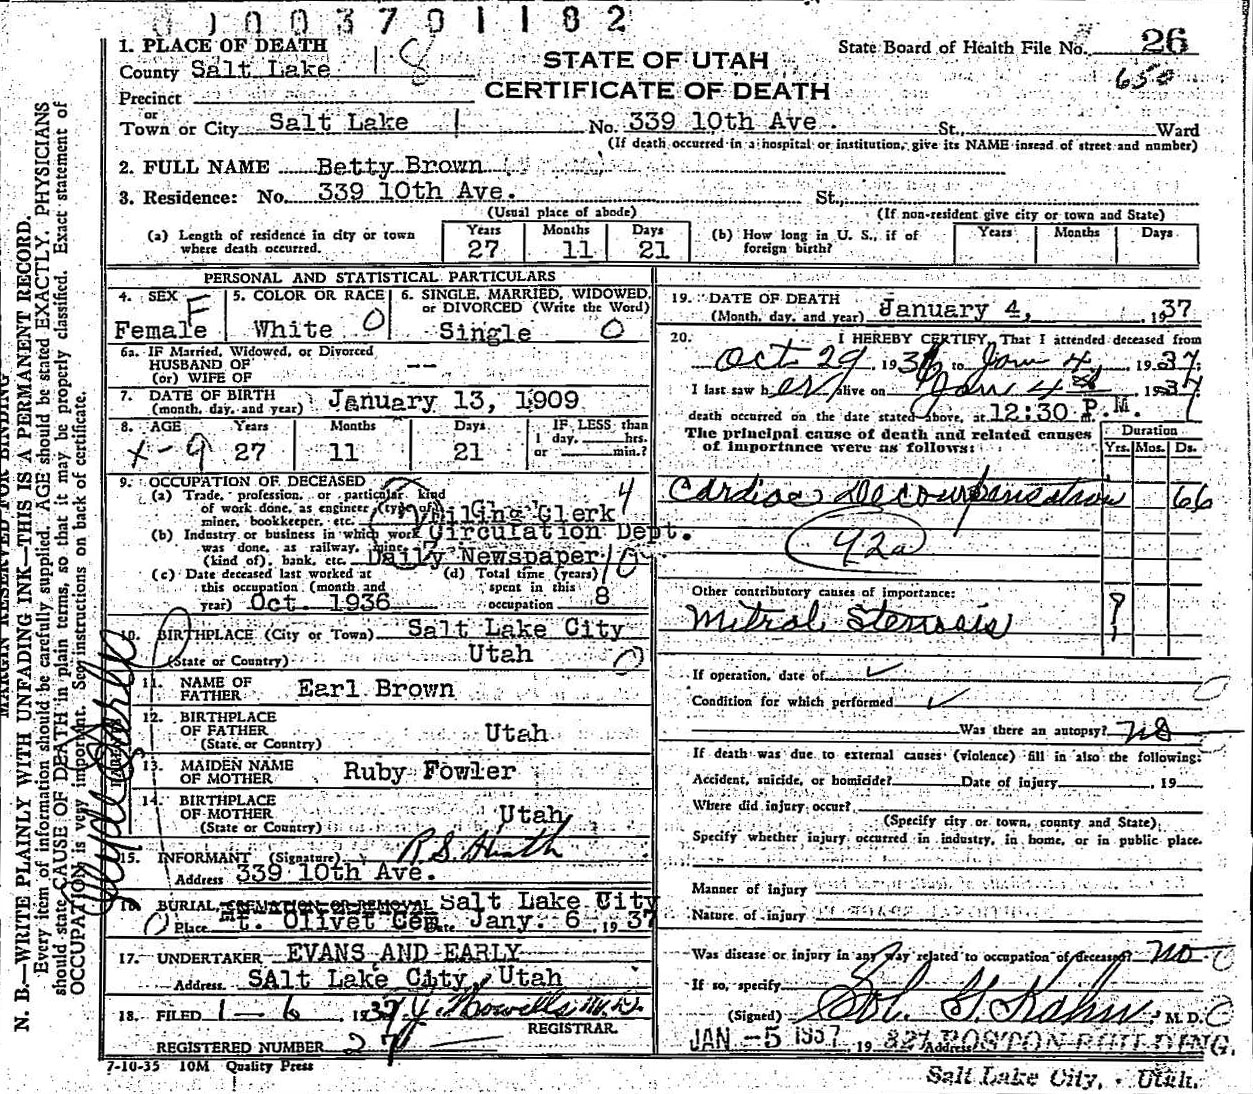 0003701182
1. PLACE OF DEATH
County Salt Lake 18
Precinct
or
Town or City Salt Lake 1
STATE OF UTAH
CERTIFICATE OF DEATH
State Board of Health File No. 26
650
No. 339 10th Ave. St., Ward
(If death occurred in a hospital or institution, give its NAME insead of street and number)
2. FULL NAME Betty Brown
3. Residence: No. 339 10th Ave. St.,
(Usual place of abode)
(If non-resident give city or town and State)
(a) Length of residence in city or town where death occurred. Years 27 Months 11 Days 21
(b) How long in U. S., if of foreign birth? Years Months Days
PERSONAL AND STATISTICAL PARTICULARS
4. SEX F
Female
5. COLOR OR RACE
White 0
6. SINGLE, MARRIED, WIDOWED, or DIVORCED (Write the Word)
Single 0
6a. IF Married, Widowed, or Divorced
HUSBAND OF
(or) WIFE OF --
7. DATE OF BIRTH
(month, day, and year) January 13, 1909
8. AGE Years Months Days IF LESS than
1 day, hrs.
or min.?
x-9 27 11 21
9. OCCUPATION OF DECEASED
(a) Trade, profession, or particular kind
of work done, as engineer, (type of
miner, bookkeeper, etc. Filing Clerk 4
(b) Industry or business in which work Circulation Dept.
was done, as railway, mine
(kind of), bank, etc. Daily Newspaper 10
(c) Date deceased last worked at
this occupation (month and
year) Oct. 1936
(d) Total time (years)
spent in this
occupation 8
10. BIRTHPLACE (City or Town) Salt Lake City
(State or Country) Utah 0
11. NAME OF
FATHER Earl Brown
12. BIRTHPLACE
OF FATHER
(State or Country) Utah
13. MAIDEN NAME
OF MOTHER Ruby Fowler
14. BIRTHPLACE
OF MOTHER
(State or Country) Utah
15. INFORMANT (Signature) R. S. Heath
Address 339 10th Ave.
16. BURIAL, CREMATION OR REMOVAL Salt Lake City
Place Mt. Olivet Cem Date Jany. 6, 1937
17. UNDERTAKER EVANS AND EARLY
Address SAlt Lake City, Utah
18. FILED 1-6, 1937
REGISTRAR.
REGISTERED NUMBER 27
7-10-35 10M Quality Press
19. DATE OF DEATH
(Month, day, and year) January 4, 1937
20. I HEREBY CERTIFY, That I attended deceased from
Oct 29, 1936 to Jan 4, 1937
I last saw her alive on Jan 4th 1937
death occurred on the date stated above, at 12:30 P.M.
The principal cause of death and related causes
of importance were as follows:
Duration
Yrs. Mos. Ds.
Cardiac Decompensation 66
92a
Other contributory causes of importance:
Mitral Stenosis ?
If operation, date of
Condition for which performed
Was there an autopsy? No
If death was due to external causes (violence) fill in also the following:
Accident, suicide, or homicide? Date of injury , 19
Where did injury occur?
(Specify city or town, county and State)
Specify whether injury occurred in industry, in home, or in public place.
Manner of injury
Nature of injury
Was disease or injury in any way related to occupation of deceased? No
If so, specify
(Signed) Sol. G. Kahn, M. D.
JAN -5 1937, 19 Address 321 BOSTON BUILDING.
Salt Lake City, Utah.
MARGIN RESERVED FOR BINDING
N. B.—WRITE PLAINLY WITH UNFADING INK—THIS IS A PERMANENT RECORD.
Every item of information should be carefully supplied. AGE should be stated EXACTLY. PHYSICIANS
should state CAUSE OF DEATH in plain terms, so that it may be properly classified. Exact statement of
OCCUPATION is very important. See instructions on back of certificate.